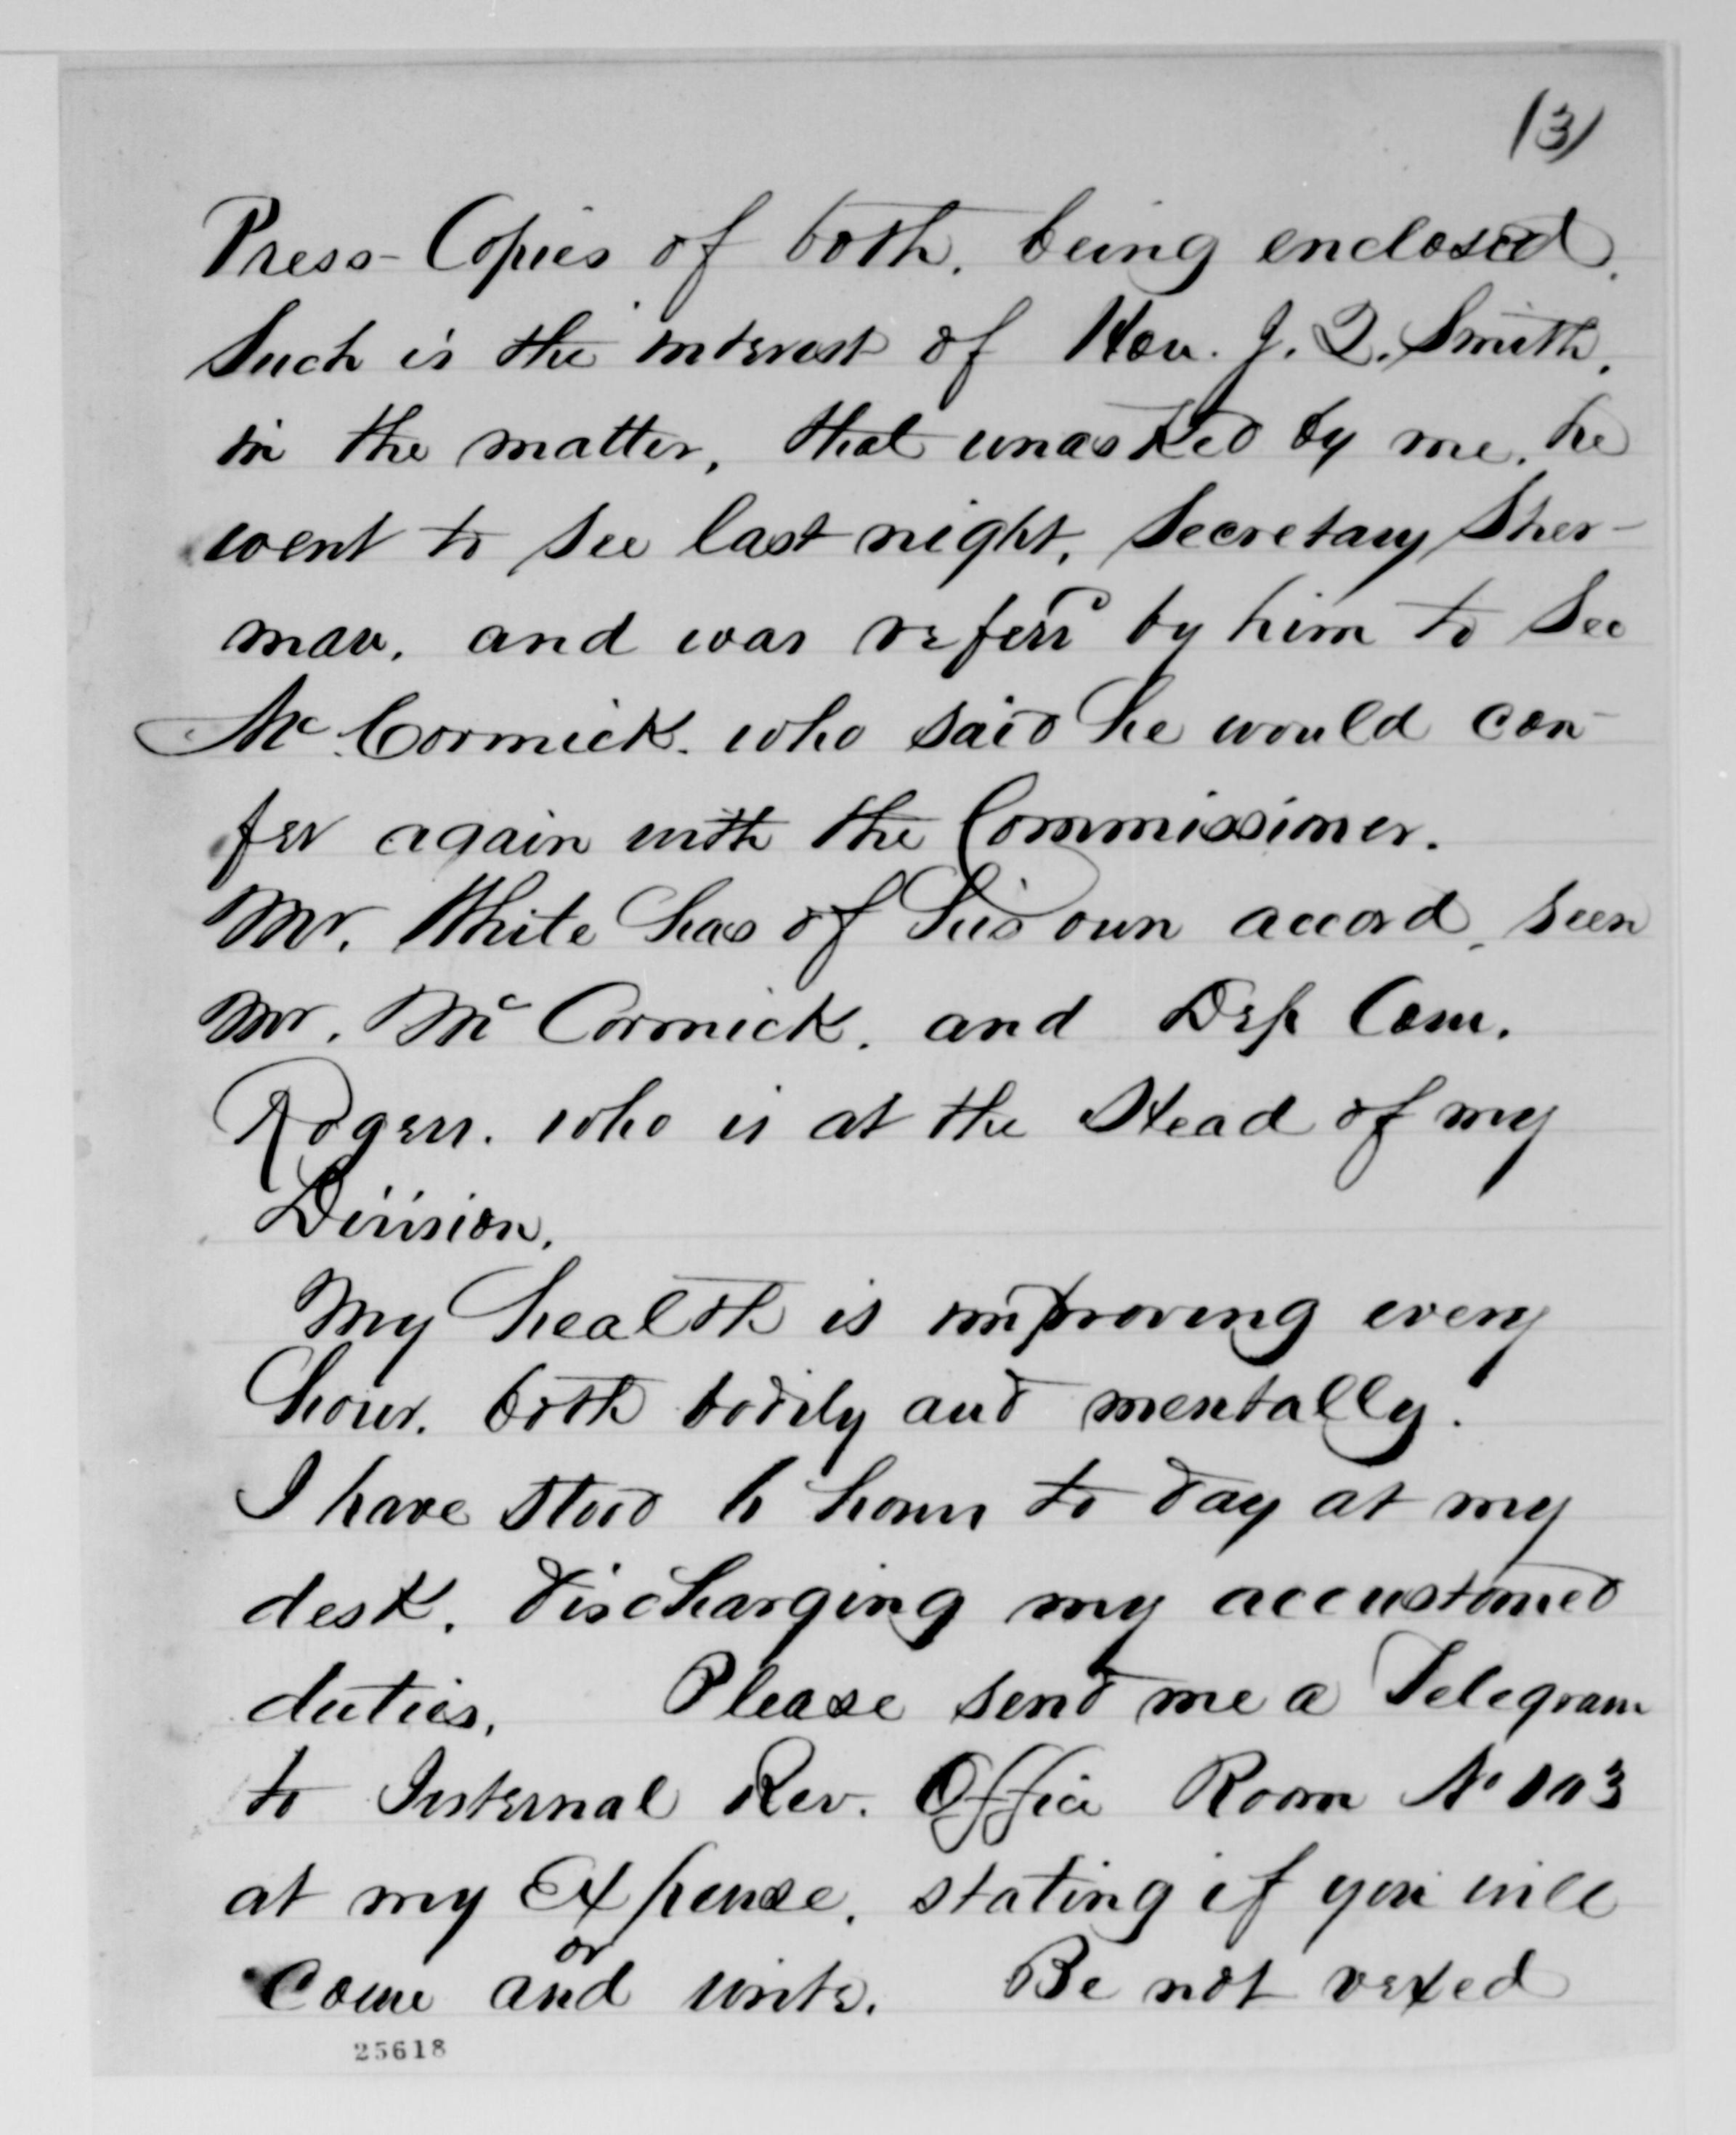 (3)
Press-Copies of both, being enclosed.
Such is the interest of Hon. J. Q. Smith,
in the matter, that unasked by me, he
went to see last night, Secretary Sher-
man, and was referrd by him to See
McCormick. who said he would con-
fer again with the Commissioner.
Mr. White has of his own accord, seen
Mr. McCormick. and Dep Com.
Rogers. who is at the Head of my
Division.
My health is improving every
hour. both bodily and mentally.
I have stood 6 hours to day at my
desk. discharging my accustomed
duties. Please send me a Telegram
to Internal Rev. Office Room No 103
at my Expense, stating if you will
or
Come and write. Be not vexed
25618